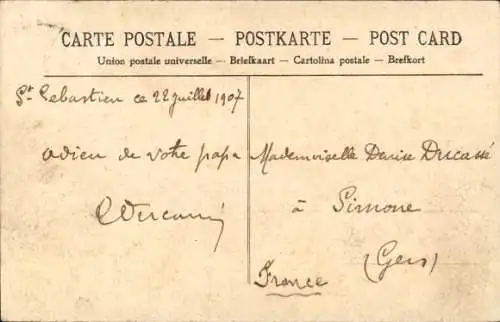 CARTE POSTALE — POSTKARTE — POST CARD
Union postale universelle — Briefkaart — Cartolina postale — Brefkort
St Sebastien ce 22 juillet 1907
adieu de votre papa
Mademoiselle Denise Ducassé
à Simone
(Gers)
France